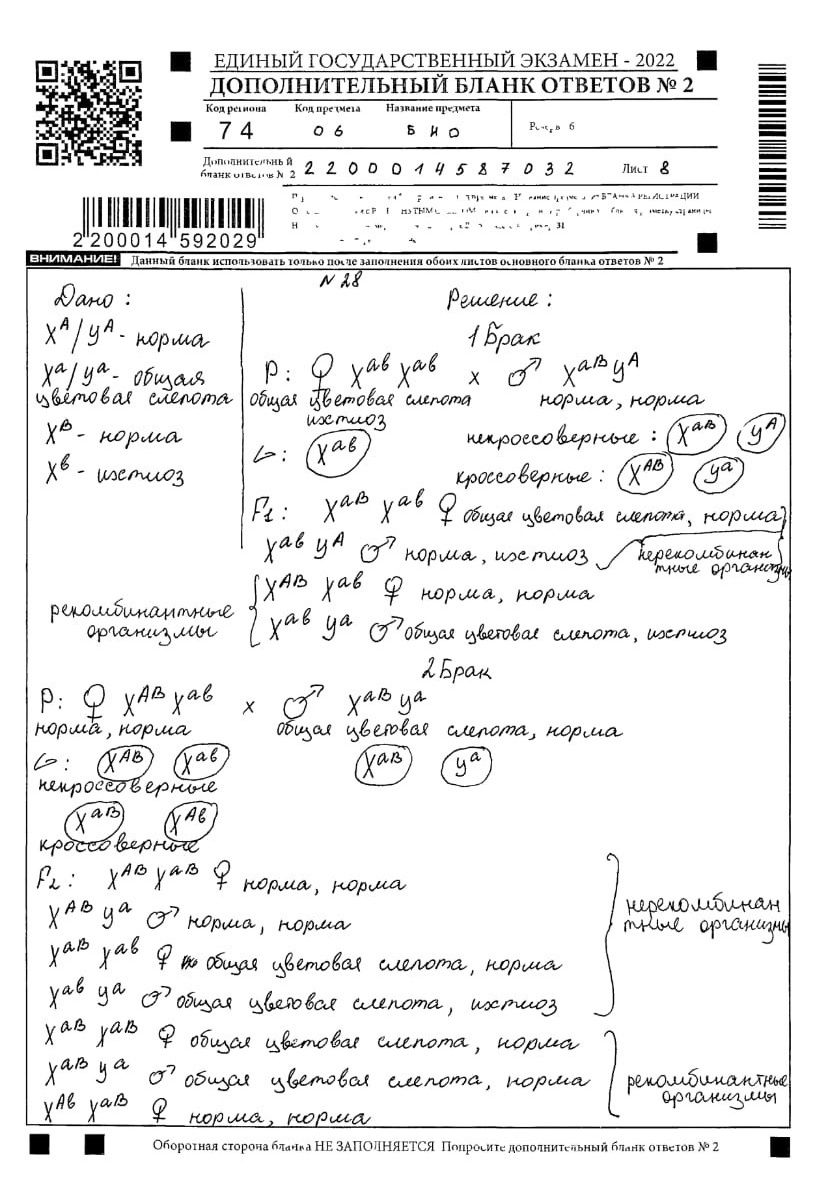 ЕДИНЫЙ ГОСУДАРСТВЕННЫЙ ЭКЗАМЕН - 2022
ДОПОЛНИТЕЛЬНЫЙ БЛАНК ОТВЕТОВ № 2
Код региона Код предмета Название предмета
74 06 БИО
Дополнительный
бланк ответов № 2 2200014587032 Лист 8
2 200014 592029
ВНИМАНИЕ! Данный бланк использовать только после заполнения обоих листов основного бланка ответов № 2
№28
Дано: Решение:
X^A/y^A - норма
1 Брак
X^a/y^a - общая
цветовая слепота
P: ♀ X^ab X^ab x ♂ X^aB y^A
общая цветовая слепота норма, норма
ихтиоз
X^B - норма
X^b - ихтиоз
G: X^ab некроссоверные: X^aB y^A
кроссоверные: X^AB y^a
F1: X^aB X^ab ♀ общая цветовая слепота, норма
X^ab y^A ♂ норма, ихтиоз нерекомбинан
тные организмы
X^AB X^ab ♀ норма, норма
рекомбинантные
организмы
X^ab y^a ♂ общая цветовая слепота, ихтиоз
2 Брак
P: ♀ X^AB X^ab x ♂ X^aB y^a
норма, норма общая цветовая слепота, норма
G: X^AB X^ab X^aB y^a
некроссоверные
X^aB X^Ab
кроссоверные
F2: X^AB X^aB ♀ норма, норма
X^AB y^a ♂ норма, норма
нерекомбинан
тные организмы
X^aB X^ab ♀ общая цветовая слепота, норма
X^ab y^a ♂ общая цветовая слепота, ихтиоз
X^aB X^aB ♀ общая цветовая слепота, норма
X^aB y^a ♂ общая цветовая слепота, норма
рекомбинантные
организмы
X^Ab X^aB ♀ норма, норма
Оборотная сторона бланка НЕ ЗАПОЛНЯЕТСЯ Попросите дополнительный бланк ответов № 2